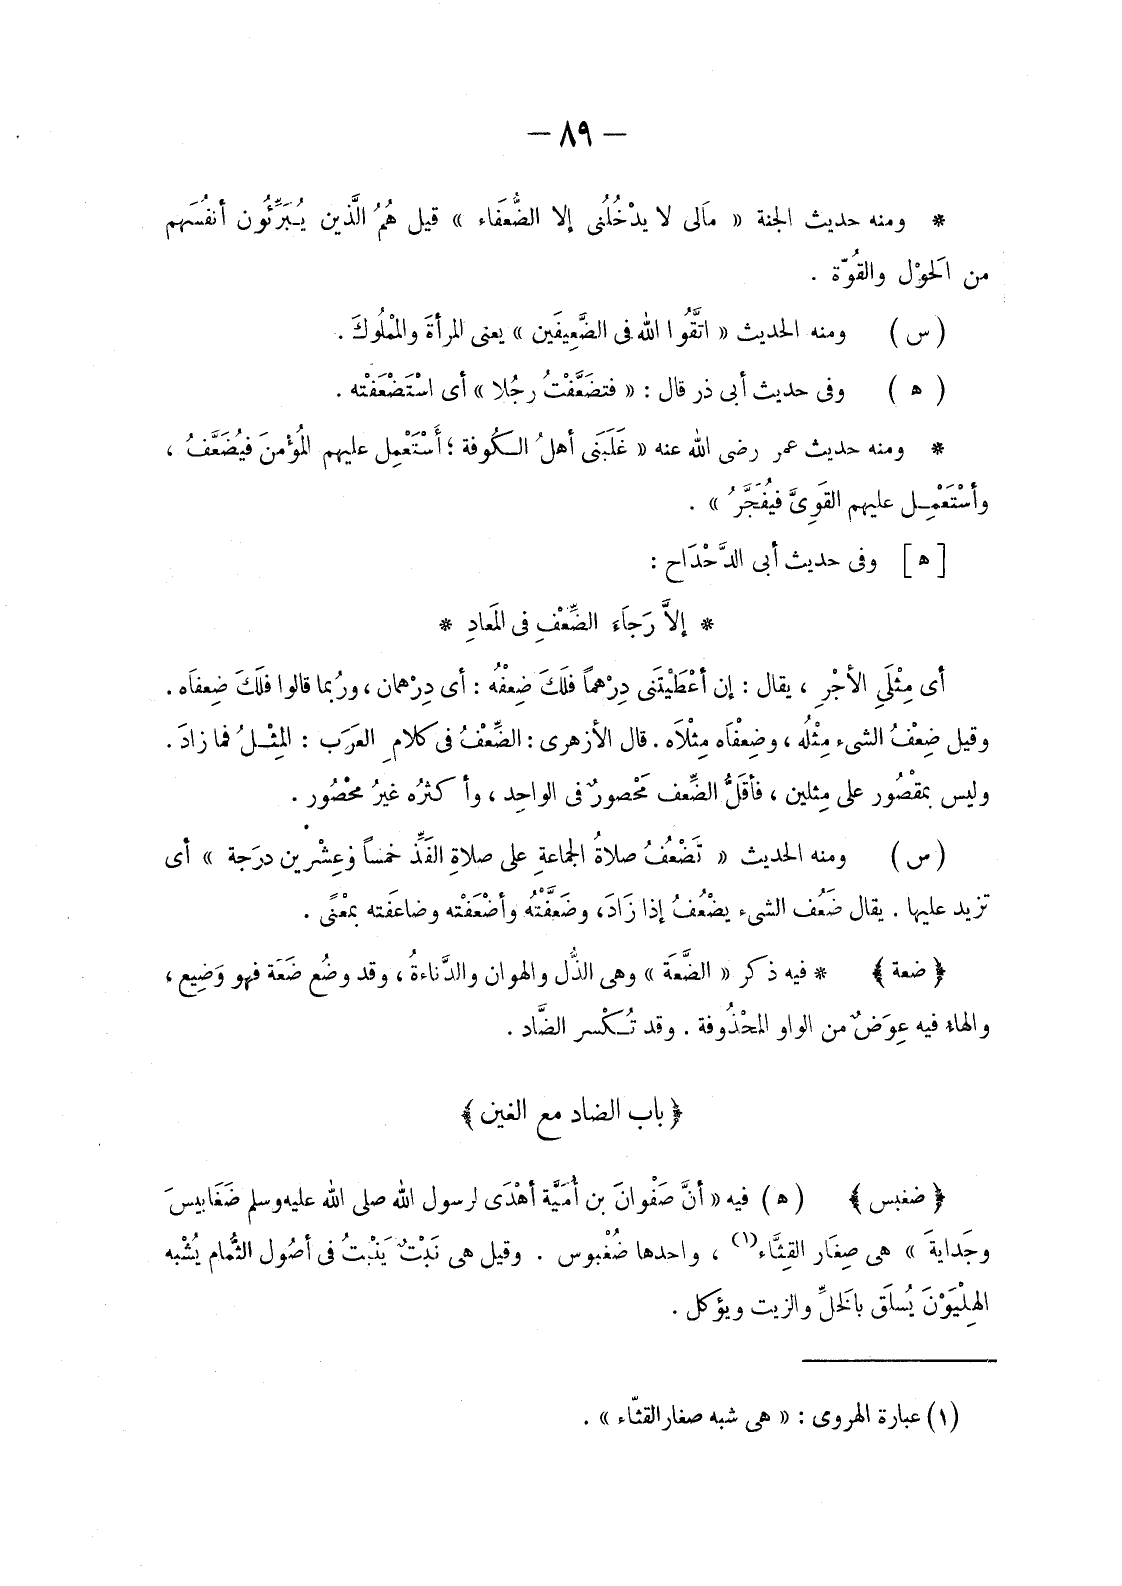 — ٨٩ —
* ومنه حديث الجنة « مَالى لا يدْخُلُنى إلا الضُّعَفَاء » قيل هُمُ الَّذين يُبَرِّئُون أنفُسَهم
من الَحوْل والقُوّة .
( س ) ومنه الحديث « اتَّقُوا الله فى الضَّعِيفَين » يعنى المرأةَ والممْلُوكَ .
( ه ) وفى حديث أبى ذر قال : « فتضَعَّفْتُ رجُلا » أى اسْتَضْعَفْته .
* ومنه حديث عمر رضى الله عنه « غَلَبَنى أهلُ الكُوفة ؛ أَسْتَعْمِل عليهم المُؤْمنَ فيُضَعَّفُ ،
وأسْتَعْمِل عليهم القَوِىَّ فيُفَجَّرُ » .
[ ه ] وفى حديث أبى الدَّحْدَاح :
* إلاَّ رَجَاءَ الضِّعْفِ فى المَعادِ *
أى مِثْلَىِ الأجْرِ ، يقال : إن أعْطَيْتَنى دِرْهماً فلَكَ ضِعفْهُ : أى دِرْهمان ، وربُما قالوا فلَكَ ضِعفَاه .
وقيل ضِعْفُ الشىء مِثْلُه ، وضِعْفَاه مِثْلاَه . قال الأزهرى : الضِّعْفُ فى كلامِ العَرَب : المِثْلُ فما زادَ .
وليس بمقْصُور على مِثلين ، فأقَلُّ الضِّعف مَحْصورٌ فى الواحِد ، وأكثرُه غيرُ محْصُور .
( س ) ومنه الحديث « تَضْعُفُ صلاةُ الجماعةِ على صلاةِ الفَذِّ خمساً وعِشْرين درَجة » أى
تزيد عليها . يقال ضَعُف الشىء يضْعُفُ إذا زَادَ ، وضَعَّفْتُه وأضْعَفْته وضاعَفته بمْعنًى .
﴿ ضعة ﴾ * فيه ذكر « الضَّعَة » وهى الذُّل والهوان والدَّناءةُ ، وقد وضُع ضَعَة فهو وَضِيع ،
والهاء فيه عِوَضٌ من الواو المحْذُوفة . وقد تُكْسر الضَّاد .
﴿ باب الضاد مع الغين ﴾
﴿ ضغبس ﴾ ( ه ) فيه « أنَّ صَفْوانَ بن أُمَيَّة أهْدَى لرسول الله صلى الله عليه وسلم ضَغَابيسَ
وجَدايةَ » هى صِغَار القِثَّاء(١) ، واحدها ضُغْبوس . وقيل هى نَبْتٌ يَنْبتُ فى أصُول الثُّمام يُشْبه
الهِلْيَوْنَ يُسلَق بالَخلِّ والزيت ويؤكل .
(١) عبارة الهروى : « هى شبه صغار القثّاء » .